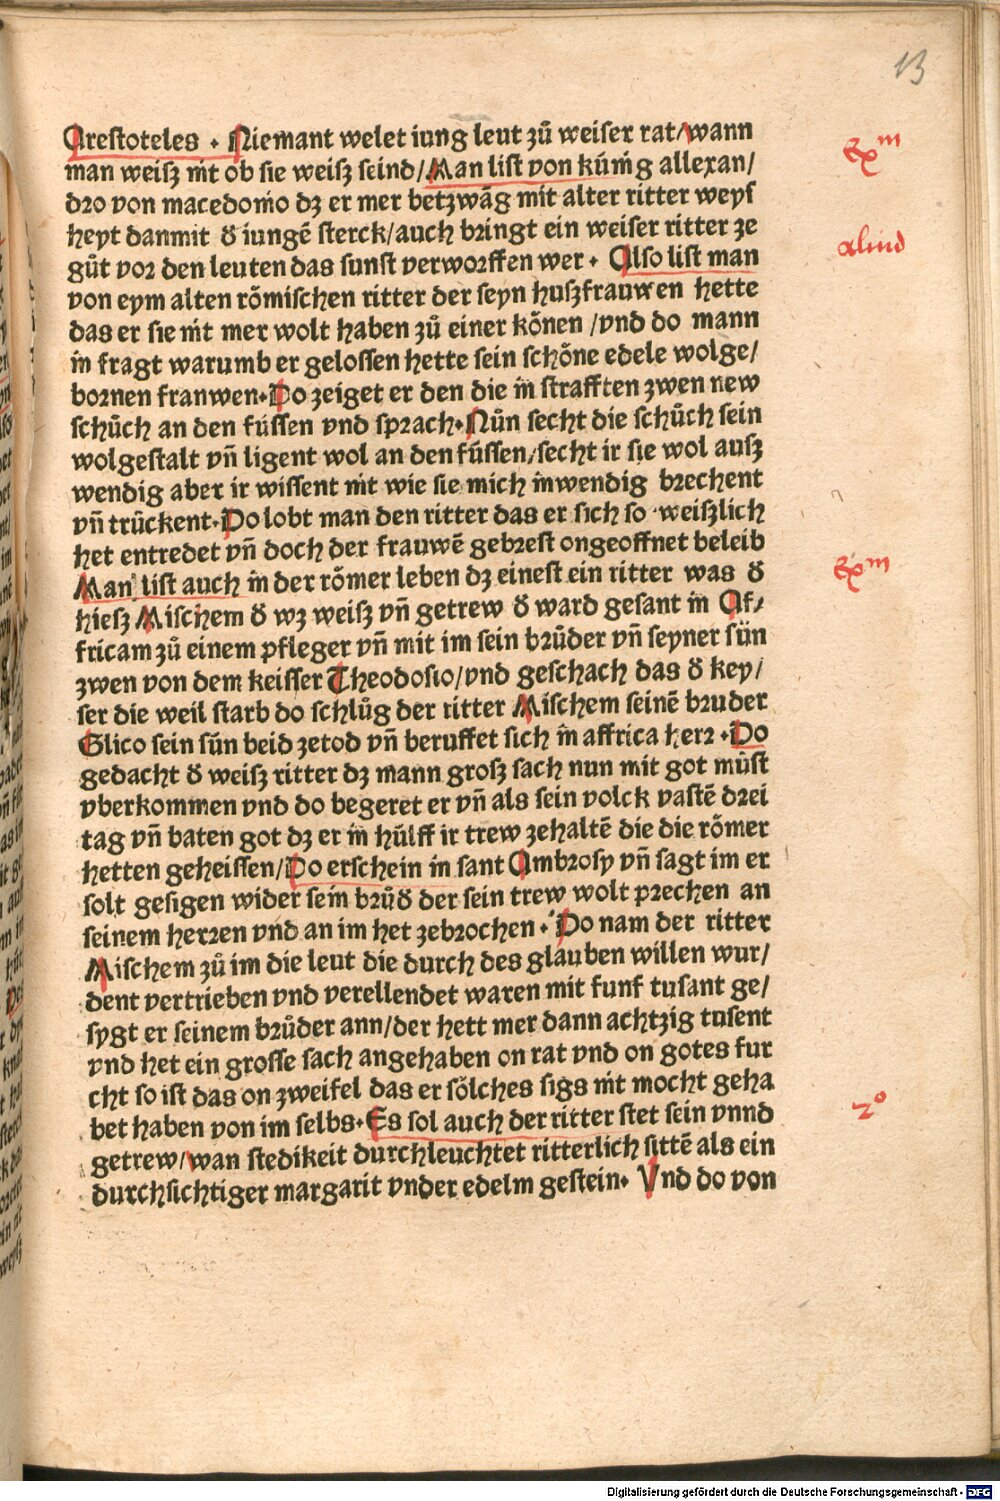 13
Areſtoteles · Niemant welet iung leut zů weiſer rat/wann
man weiſz nit ob ſie weiſz ſeind/Man liſt von künig allexan/
dro von macedonio dz er mer betzwāg mit alter ritter weyſ
heyt danmit đ iungē ſterck/auch bringt ein weiſer ritter ze
gůt vor den leuten das ſunſt verworffen wer · Alſo liſt man
von eym alten römiſchen ritter der ſeyn huſzfrauwen hette
das er ſie nit mer wolt haben zů einer könen /vnd do mann
in fragt warumb er geloſſen hette ſein ſchöne edele wolge/
bornen franwen·Do zeiget er den die in ſtrafften zwen new
ſchůch an den füſſen vnd ſprach·Nůn ſecht die ſchůch ſein
wolgeſtalt vñ ligent wol an den füſſen/ſecht ir ſie wol auſz
wendig aber ir wiſſent nit wie ſie mich inwendig brechent
vñ trückent·Do lobt man den ritter das er ſich ſo weiſzlich
het entredet vñ doch der frauwē gebreſt ongeoffnet beleib
Man liſt auch in der römer leben dz eineſt ein ritter was đ
hieſz Miſchem đ wz weiſz vñ getrew đ ward geſant in Af/
fricam zů einem pfleger vñ mit im ſein brůder vñ ſeyner ſün
zwen von dem keiſſer Theodoſio/vnd geſchach das đ key/
ſer die weil ſtarb do ſchlůg der ritter Miſchem ſeinē bruder
Glico ſein ſün beid zetod vñ beruffet ſich in affrica herr ·Do
gedacht đ weiſz ritter dz mann groſz ſach nun mit got můſt
vberkommen vnd do begeret er vñ als ſein volck vaſtē drei
tag vñ baten got dz er in hülff ir trew zehaltē die die römer
hetten geheiſſen/Do erſchein in ſant Ambroſy vñ ſagt im er
ſolt geſigen wider ſein brůđ der ſein trew wolt prechen an
ſeinem herren vnd an im het zebrochen · Do nam der ritter
Miſchem zů im die leut die durch des glauben willen wur/
dent vertrieben vnd verellendet waren mit funf tuſant ge/
ſygt er ſeinem brůder ann/der hett mer dann achtzig tuſent
vnd het ein groſſe ſach angehaben on rat vnd on gotes fur
cht ſo iſt das on zweifel das er ſölches ſigs nit mocht geha
bet haben von im ſelbs·Es ſol auch der ritter ſtet ſein vnnd
getrew/wan ſtedikeit durchleuchtet ritterlich ſittē als ein
durchſichtiger margarit vnder edelm geſtein· Vnd do von
Exm
aliud
Exm
2o
Digitalisierung gefördert durch die Deutsche Forschungsgemeinschaft - DFG